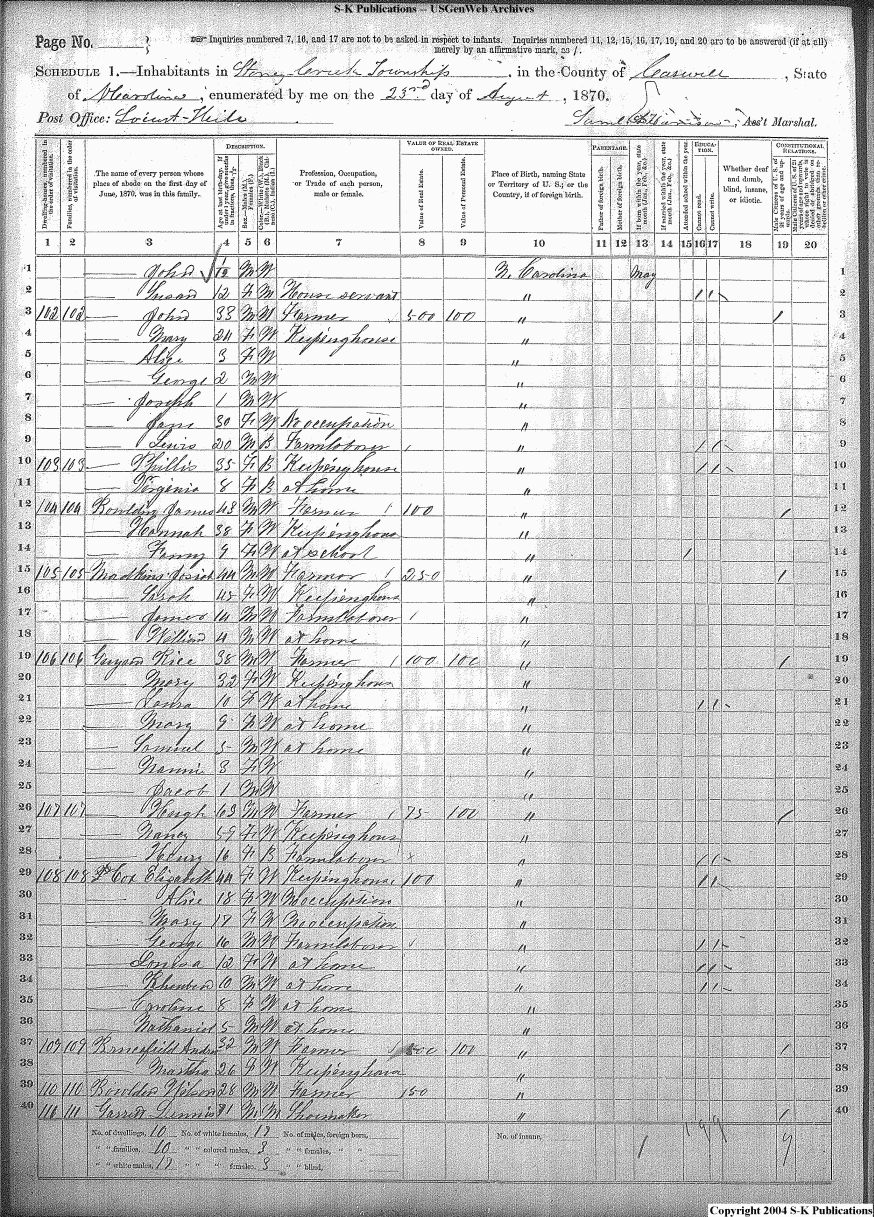 S-K Publications -- USGenWeb Archives
Page No.
Inquiries numbered 7, 16, and 17 are not to be asked in respect to infants. Inquiries numbered 11, 12, 15, 16, 17, 19, and 20 are to be answered (if at all)
merely by an affirmative mark, as /.
SCHEDULE 1.—Inhabitants in Stoney Creek Township, in the County of Caswell, State
of N Carolina, enumerated by me on the 23rd day of August, 1870.
Post Office: Locust-Hill Ass't Marshal.
DESCRIPTION. VALUE OF REAL ESTATE OWNED. PARENTAGE. EDUCATION. CONSTITUTIONAL RELATIONS.
The name of every person whose place of abode on the first day of June, 1870, was in this family.
Profession, Occupation, or Trade of each person, male or female.
Value of Real Estate.
Value of Personal Estate.
Place of Birth, naming State or Territory of U. S.; or the Country, if of foreign birth.
Father of foreign birth.
Mother of foreign birth.
Attended school within the year.
Cannot read.
Cannot write.
Whether deaf and dumb, blind, insane, or idiotic.
1 2 3 4 5 6 7 8 9 10 11 12 13 14 15 16 17 18 19 20
1 —— John M W N. Carolina May 1
2 —— Susan 12 F M House servant " / / 2
3 102 102 —— John 33 M W Farmer 500 100 " / 3
4 —— Mary 24 F W Keeping house " 4
5 —— Alice 3 F W " 5
6 —— George 2 M W " 6
7 —— Joseph 1 M W " 7
8 —— Jane 30 F W No occupation " 8
9 —— Lewis 20 M B Farm laborer " / / 9
10 103 103 —— Phillis 35 F B Keeping house " / / 10
11 —— Virginia 8 F B at home " 11
12 104 104 James 43 M W Farmer 100 " / 12
13 —— Hannah 38 F W Keeping house " 13
14 —— Fanny 9 F W at school " / 14
15 105 105 Madkins Josiah 44 M W Farmer 250 " / 15
16 —— Sarah 45 F W Keeping house " 16
17 —— James 14 M W Farm laborer " 17
18 —— William 4 M W at home " 18
19 106 106 Rice 38 M W Farmer 100 100 " / 19
20 —— Mary 32 F W Keeping house " 20
21 —— Laura 10 F W at home " / / 21
22 —— Mary 9 F W at home " 22
23 —— Samuel 5 M W at home " 23
24 —— Nannie 3 F W " 24
25 —— Jacob 1 M W " 25
26 107 107 —— Hugh 63 M W Farmer 75 100 " / 26
27 —— Nancy 59 F W Keeping house " 27
28 —— Henry 16 F B Farm laborer " / / 28
29 108 108 Cox Elizabeth 44 F W Keeping house 100 " / / 29
30 —— Alice 18 F W No occupation " 30
31 —— Mary 17 F W No occupation " 31
32 —— George 16 M W Farm laborer " / / 32
33 —— Louisa 12 F W at home " / / 33
34 —— 10 M W at home " / / 34
35 —— Caroline 8 F W at home " 35
36 —— Nathaniel 5 M W at home " 36
37 109 109 Andrew 32 M W Farmer 100 " / 37
38 —— Martha 26 F W Keeping house " 38
39 110 110 Nelson 28 M W Farmer 150 39
40 110 111 Garrett Dennis M M Shoemaker " / 40
No. of dwellings, 10 No. of white females, 19 No. of males, foreign born, No. of insane,
" " families, 10 " " colored males, 3 " " females, " "
" " white males, 19 " " females, 3 " " blind,
Copyright 2004 S-K Publications